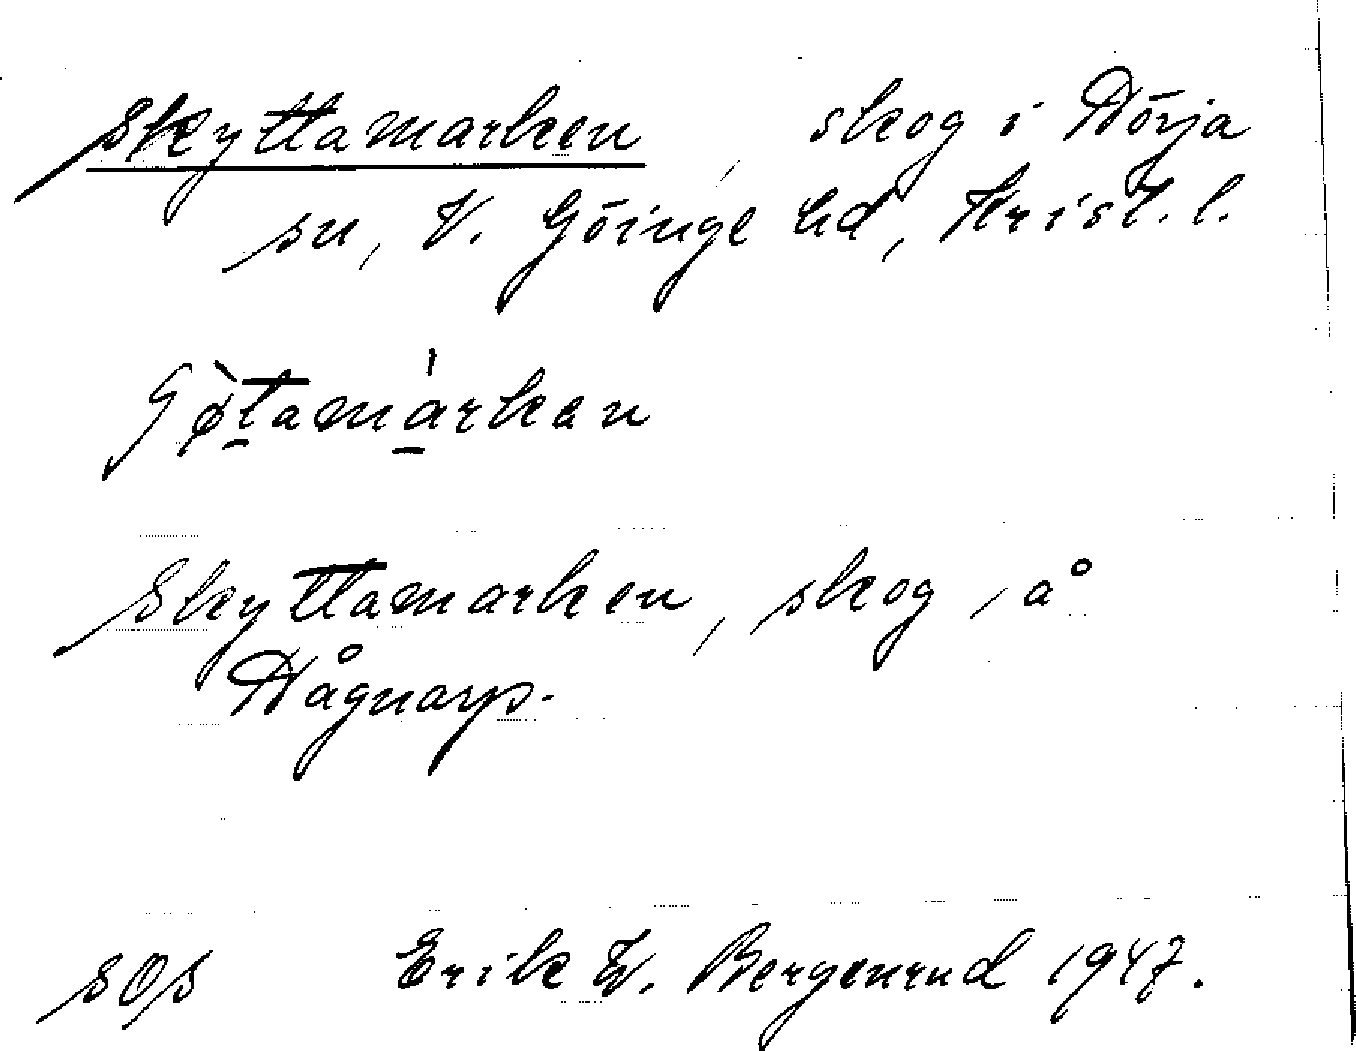 Skyttamarken, skog i Hörja
sn, V. Göinge hd, Krist. l.
Gø̀tamárkan
Skyttamarken, skog, å
Hågnarp.
SOS Erik W. Bergenrud 1947.